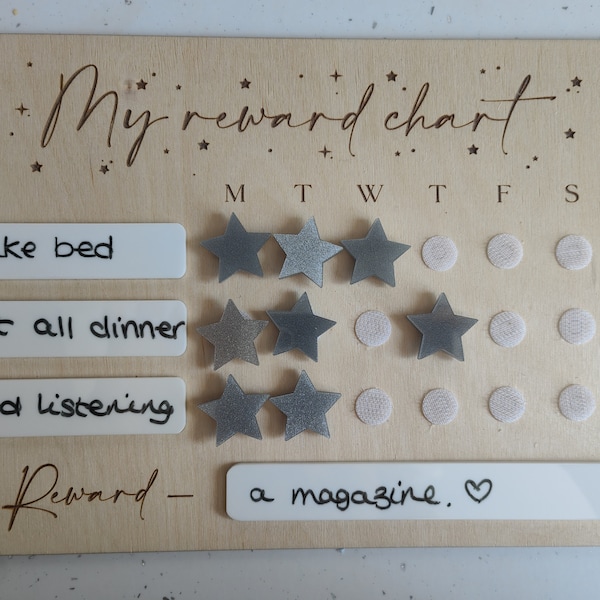 My reward chart
M T W T F S
ke bed
t all dinner
d listening
Reward – a magazine. ♡